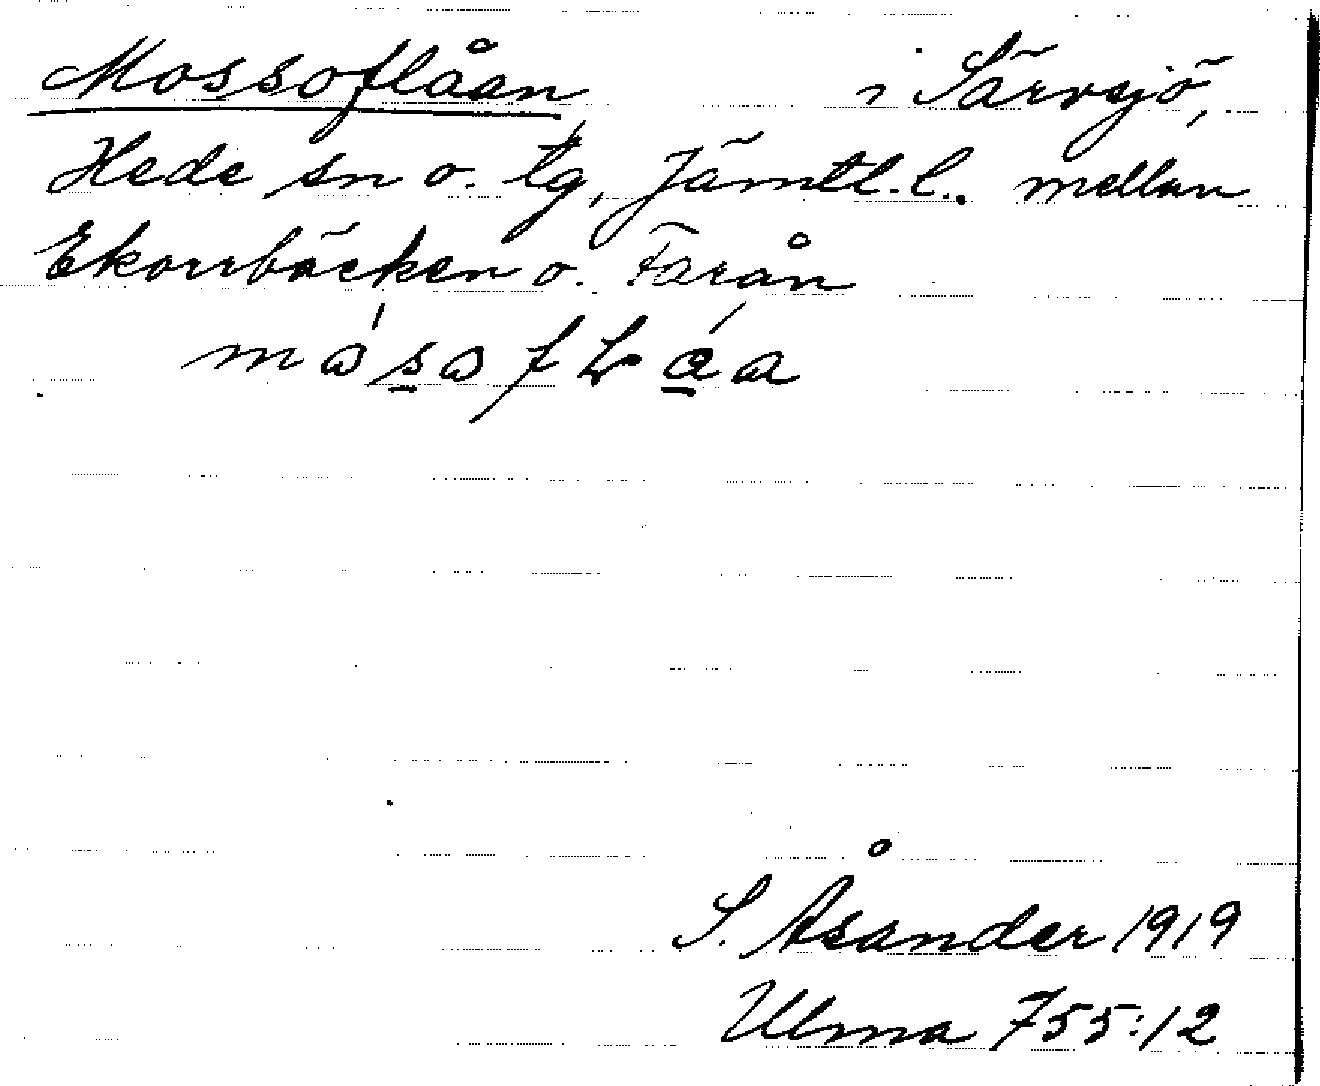 Mossoflåan i Särvsjö,
Hede sn o. tg, Jämtl. l. mellan
Ekorrbäcken o. Farån
S. Åsander 1919
Ulma 755:12